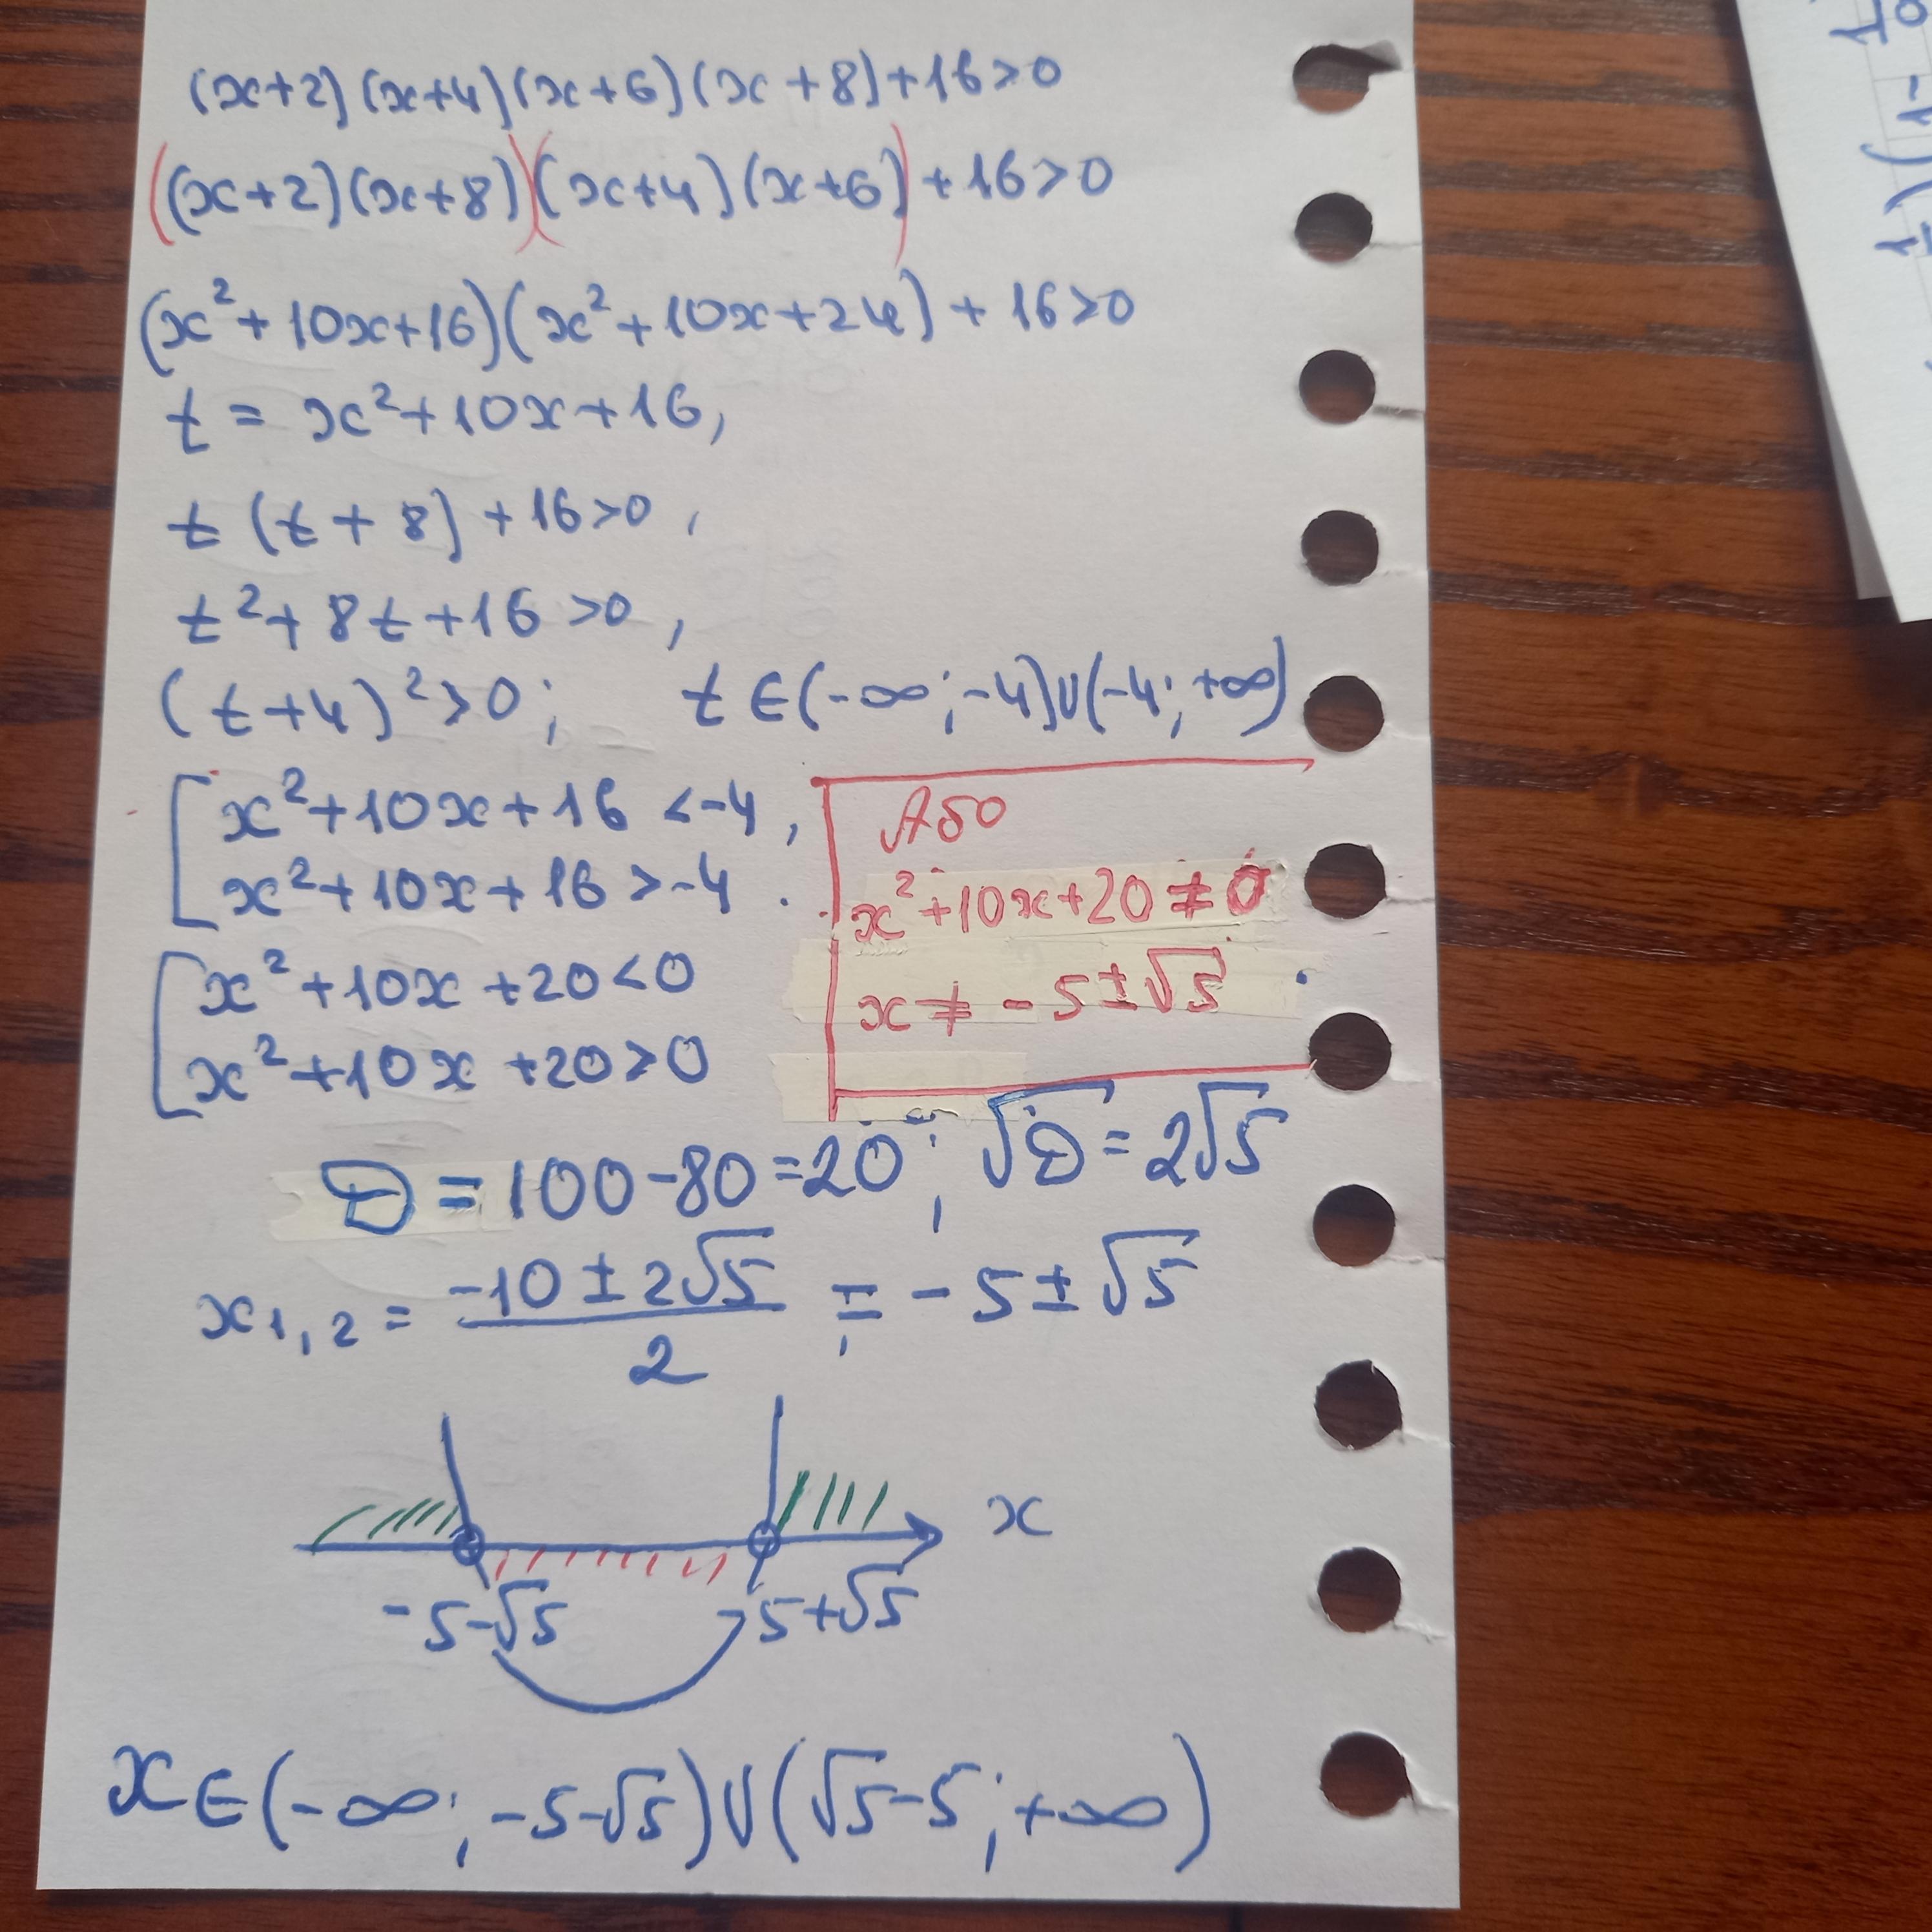 (x+2)(x+4)(x+6)(x+8)+16>0
((x+2)(x+8))((x+4)(x+6))+16>0
(x²+10x+16)(x²+10x+24)+16>0
t = x²+10x+16,
t(t+8)+16>0,
t²+8t+16>0,
(t+4)²>0; t∈(-∞;-4)∪(-4;+∞)
[x²+10x+16<-4,
x²+10x+16>-4.
Або
x²+10x+20≠0
x≠-5±√5.
[x²+10x+20<0
x²+10x+20>0
D=100-80=20; √D=2√5
x1,2=(-10±2√5)/2=-5±√5
x
-5-√5 -5+√5
x∈(-∞;-5-√5)∪(√5-5;+∞)